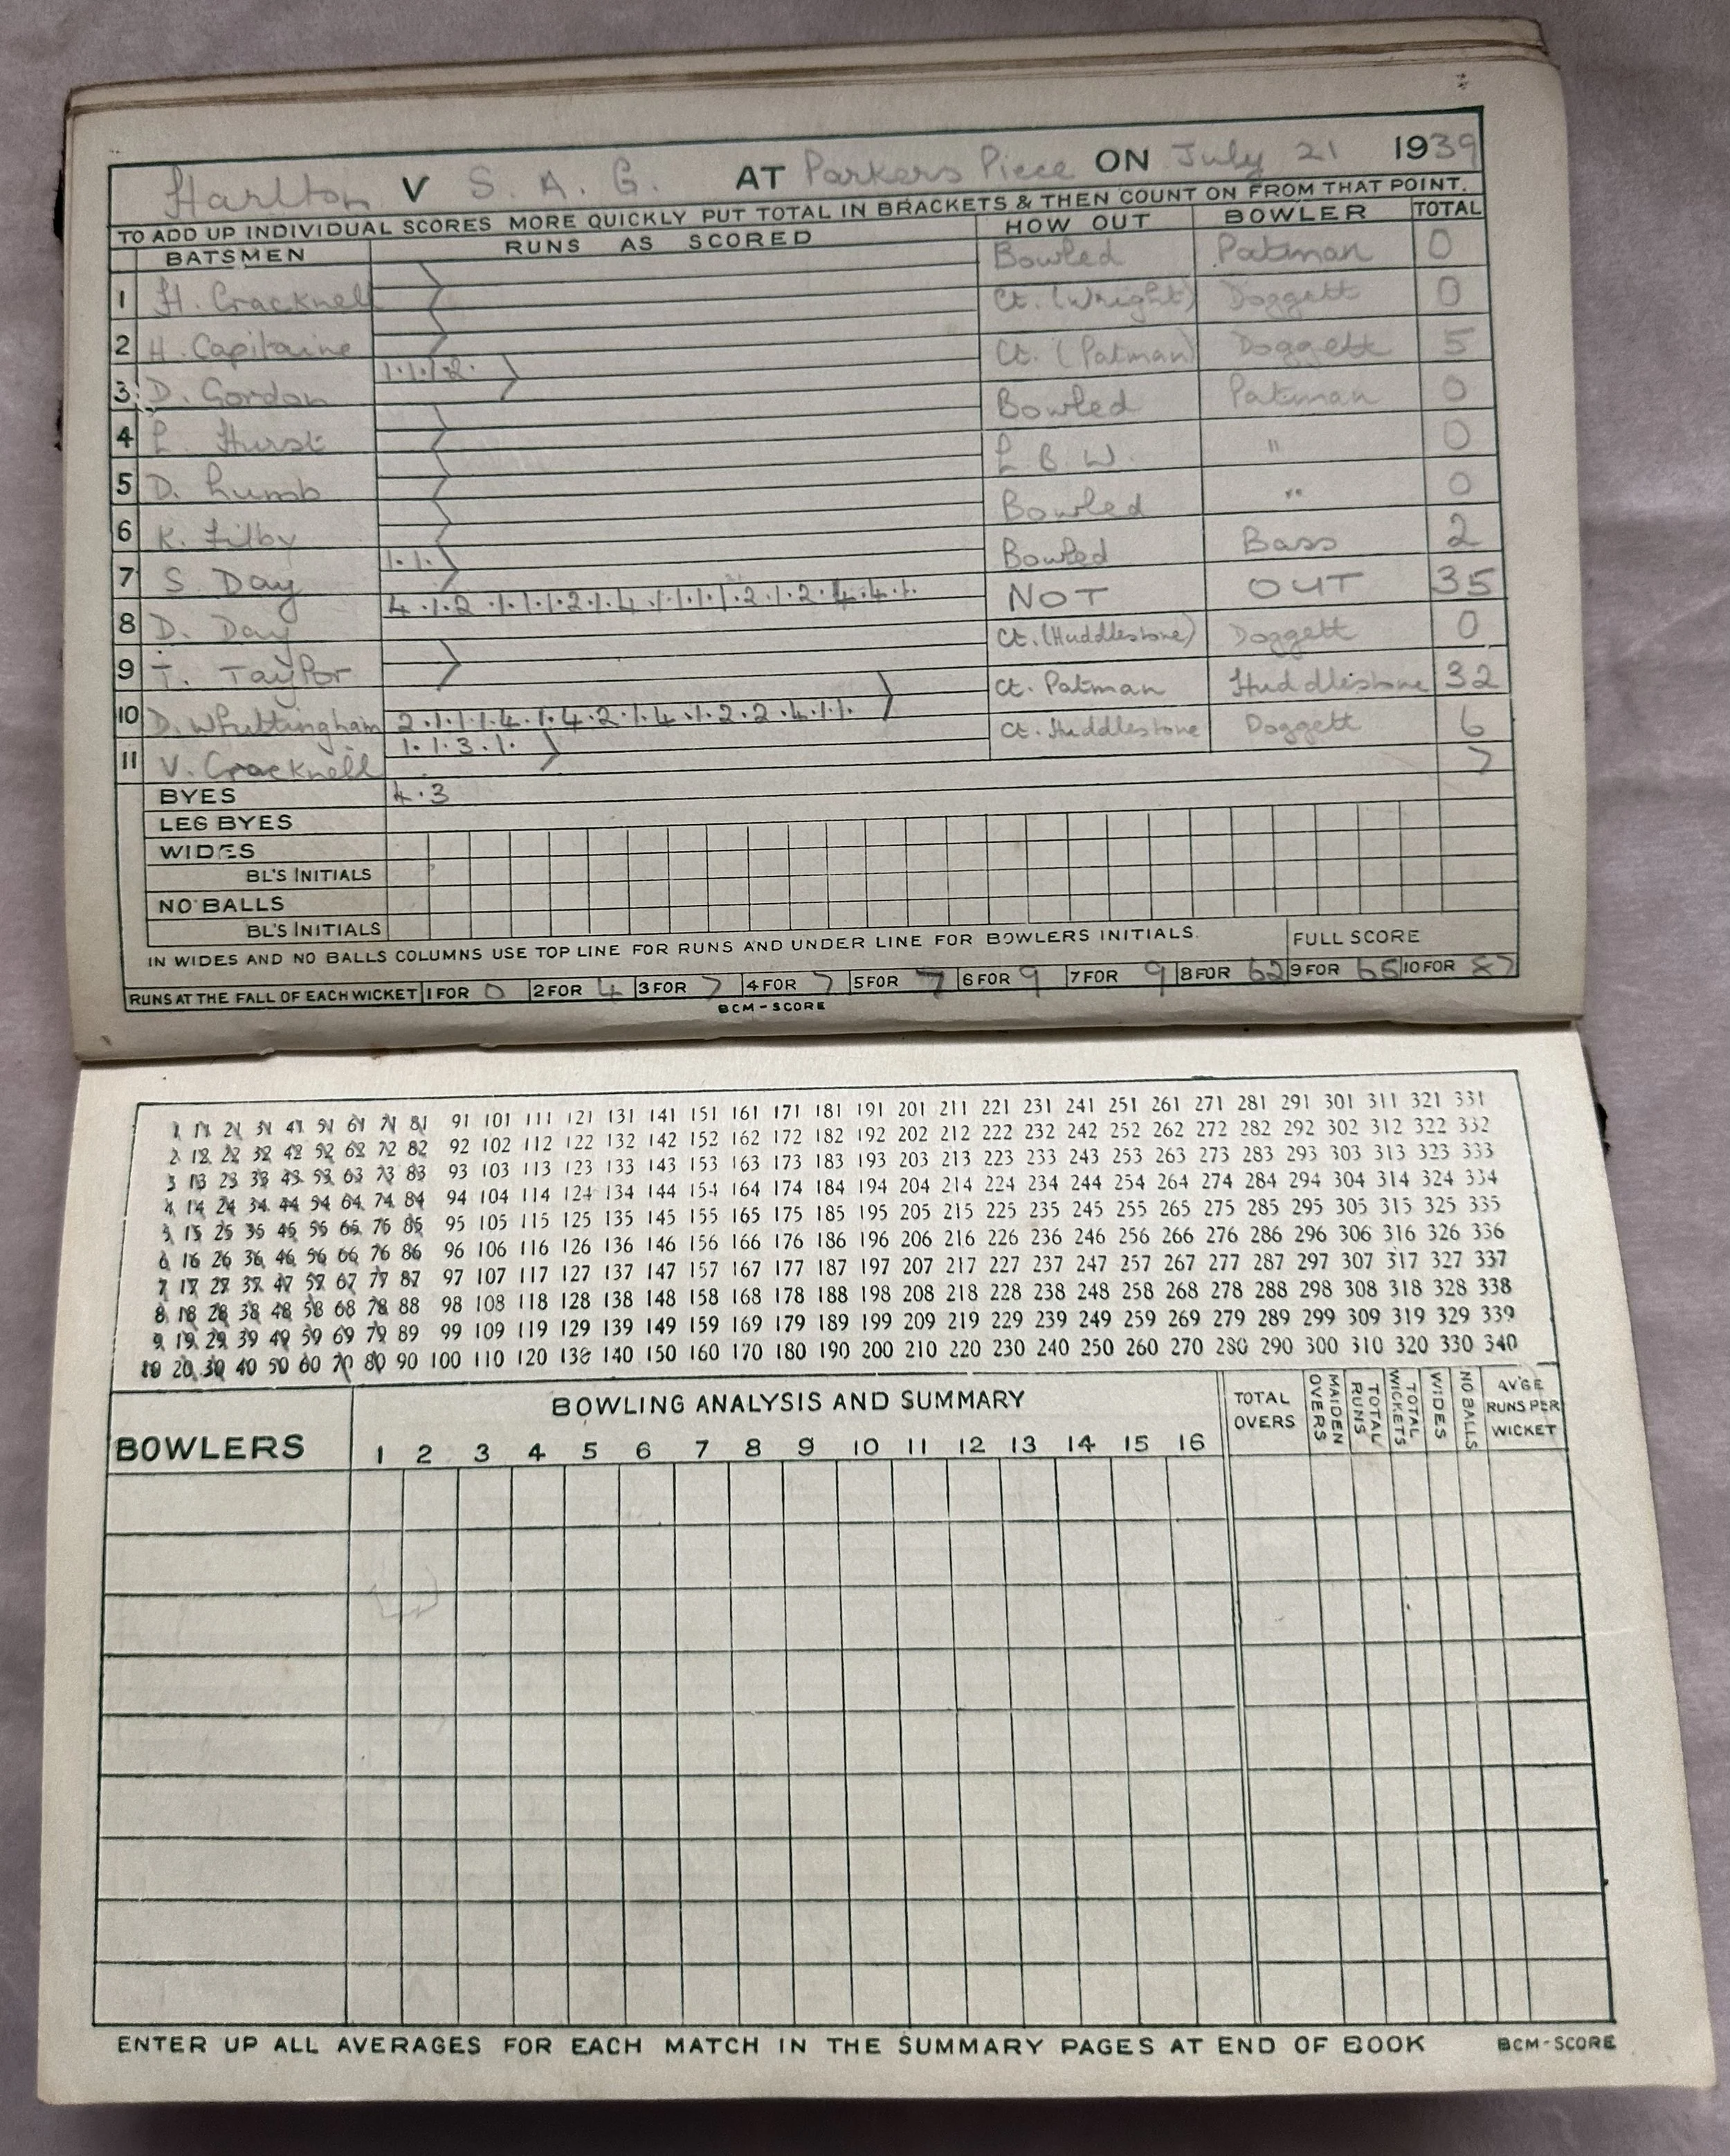 Harlton V S. A. G. AT Parkers Piece ON July 21 1939
TO ADD UP INDIVIDUAL SCORES MORE QUICKLY PUT TOTAL IN BRACKETS & THEN COUNT ON FROM THAT POINT.
BATSMEN RUNS AS SCORED HOW OUT BOWLER TOTAL
1 H. Cracknell Bowled Patman 0
2 H. Capitaine Ct. (Wright) Doggett 0
3 D. Gordon 1.1.1.2. Ct. (Patman) Doggett 5
4 L. Hurst Bowled Patman 0
5 D. Lumb L. B. W. " 0
6 K. Filby Bowled " 0
7 S. Day 1.1. Bowled Bass 2
8 D. Day 4.1.2.1.1.1.2.1.4.1.1.1.1.2.1.2.4.4.1. NOT OUT 35
9 T. Taylor Ct. (Huddlestone) Doggett 0
10 D. Whittingham 2.1.1.1.4.1.4.2.1.4.1.2.2.4.1.1. Ct. Patman Huddlestone 32
11 V. Cracknell 1.1.3.1. Ct. Huddlestone Doggett 6
BYES 4.3 7
LEG BYES
WIDES
BL'S INITIALS
NO BALLS
BL'S INITIALS
IN WIDES AND NO BALLS COLUMNS USE TOP LINE FOR RUNS AND UNDER LINE FOR BOWLERS INITIALS. FULL SCORE
RUNS AT THE FALL OF EACH WICKET 1 FOR 0 2 FOR 4 3 FOR 7 4 FOR 7 5 FOR 7 6 FOR 9 7 FOR 9 8 FOR 62 9 FOR 65 10 FOR 87
BCM-SCORE
1 11 21 31 41 51 61 71 81 91 101 111 121 131 141 151 161 171 181 191 201 211 221 231 241 251 261 271 281 291 301 311 321 331
2 12 22 32 42 52 62 72 82 92 102 112 122 132 142 152 162 172 182 192 202 212 222 232 242 252 262 272 282 292 302 312 322 332
3 13 23 33 43 53 63 73 83 93 103 113 123 133 143 153 163 173 183 193 203 213 223 233 243 253 263 273 283 293 303 313 323 333
4 14 24 34 44 54 64 74 84 94 104 114 124 134 144 154 164 174 184 194 204 214 224 234 244 254 264 274 284 294 304 314 324 334
5 15 25 35 45 55 65 75 85 95 105 115 125 135 145 155 165 175 185 195 205 215 225 235 245 255 265 275 285 295 305 315 325 335
6 16 26 36 46 56 66 76 86 96 106 116 126 136 146 156 166 176 186 196 206 216 226 236 246 256 266 276 286 296 306 316 326 336
7 17 27 37 47 57 67 77 87 97 107 117 127 137 147 157 167 177 187 197 207 217 227 237 247 257 267 277 287 297 307 317 327 337
8 18 28 38 48 58 68 78 88 98 108 118 128 138 148 158 168 178 188 198 208 218 228 238 248 258 268 278 288 298 308 318 328 338
9 19 29 39 49 59 69 79 89 99 109 119 129 139 149 159 169 179 189 199 209 219 229 239 249 259 269 279 289 299 309 319 329 339
10 20 30 40 50 60 70 80 90 100 110 120 130 140 150 160 170 180 190 200 210 220 230 240 250 260 270 280 290 300 310 320 330 340
BOWLERS BOWLING ANALYSIS AND SUMMARY TOTAL OVERS MAIDEN OVERS TOTAL RUNS TOTAL WICKETS WIDES NO BALLS AV'GE RUNS PER WICKET
1 2 3 4 5 6 7 8 9 10 11 12 13 14 15 16
ENTER UP ALL AVERAGES FOR EACH MATCH IN THE SUMMARY PAGES AT END OF BOOK BCM-SCORE